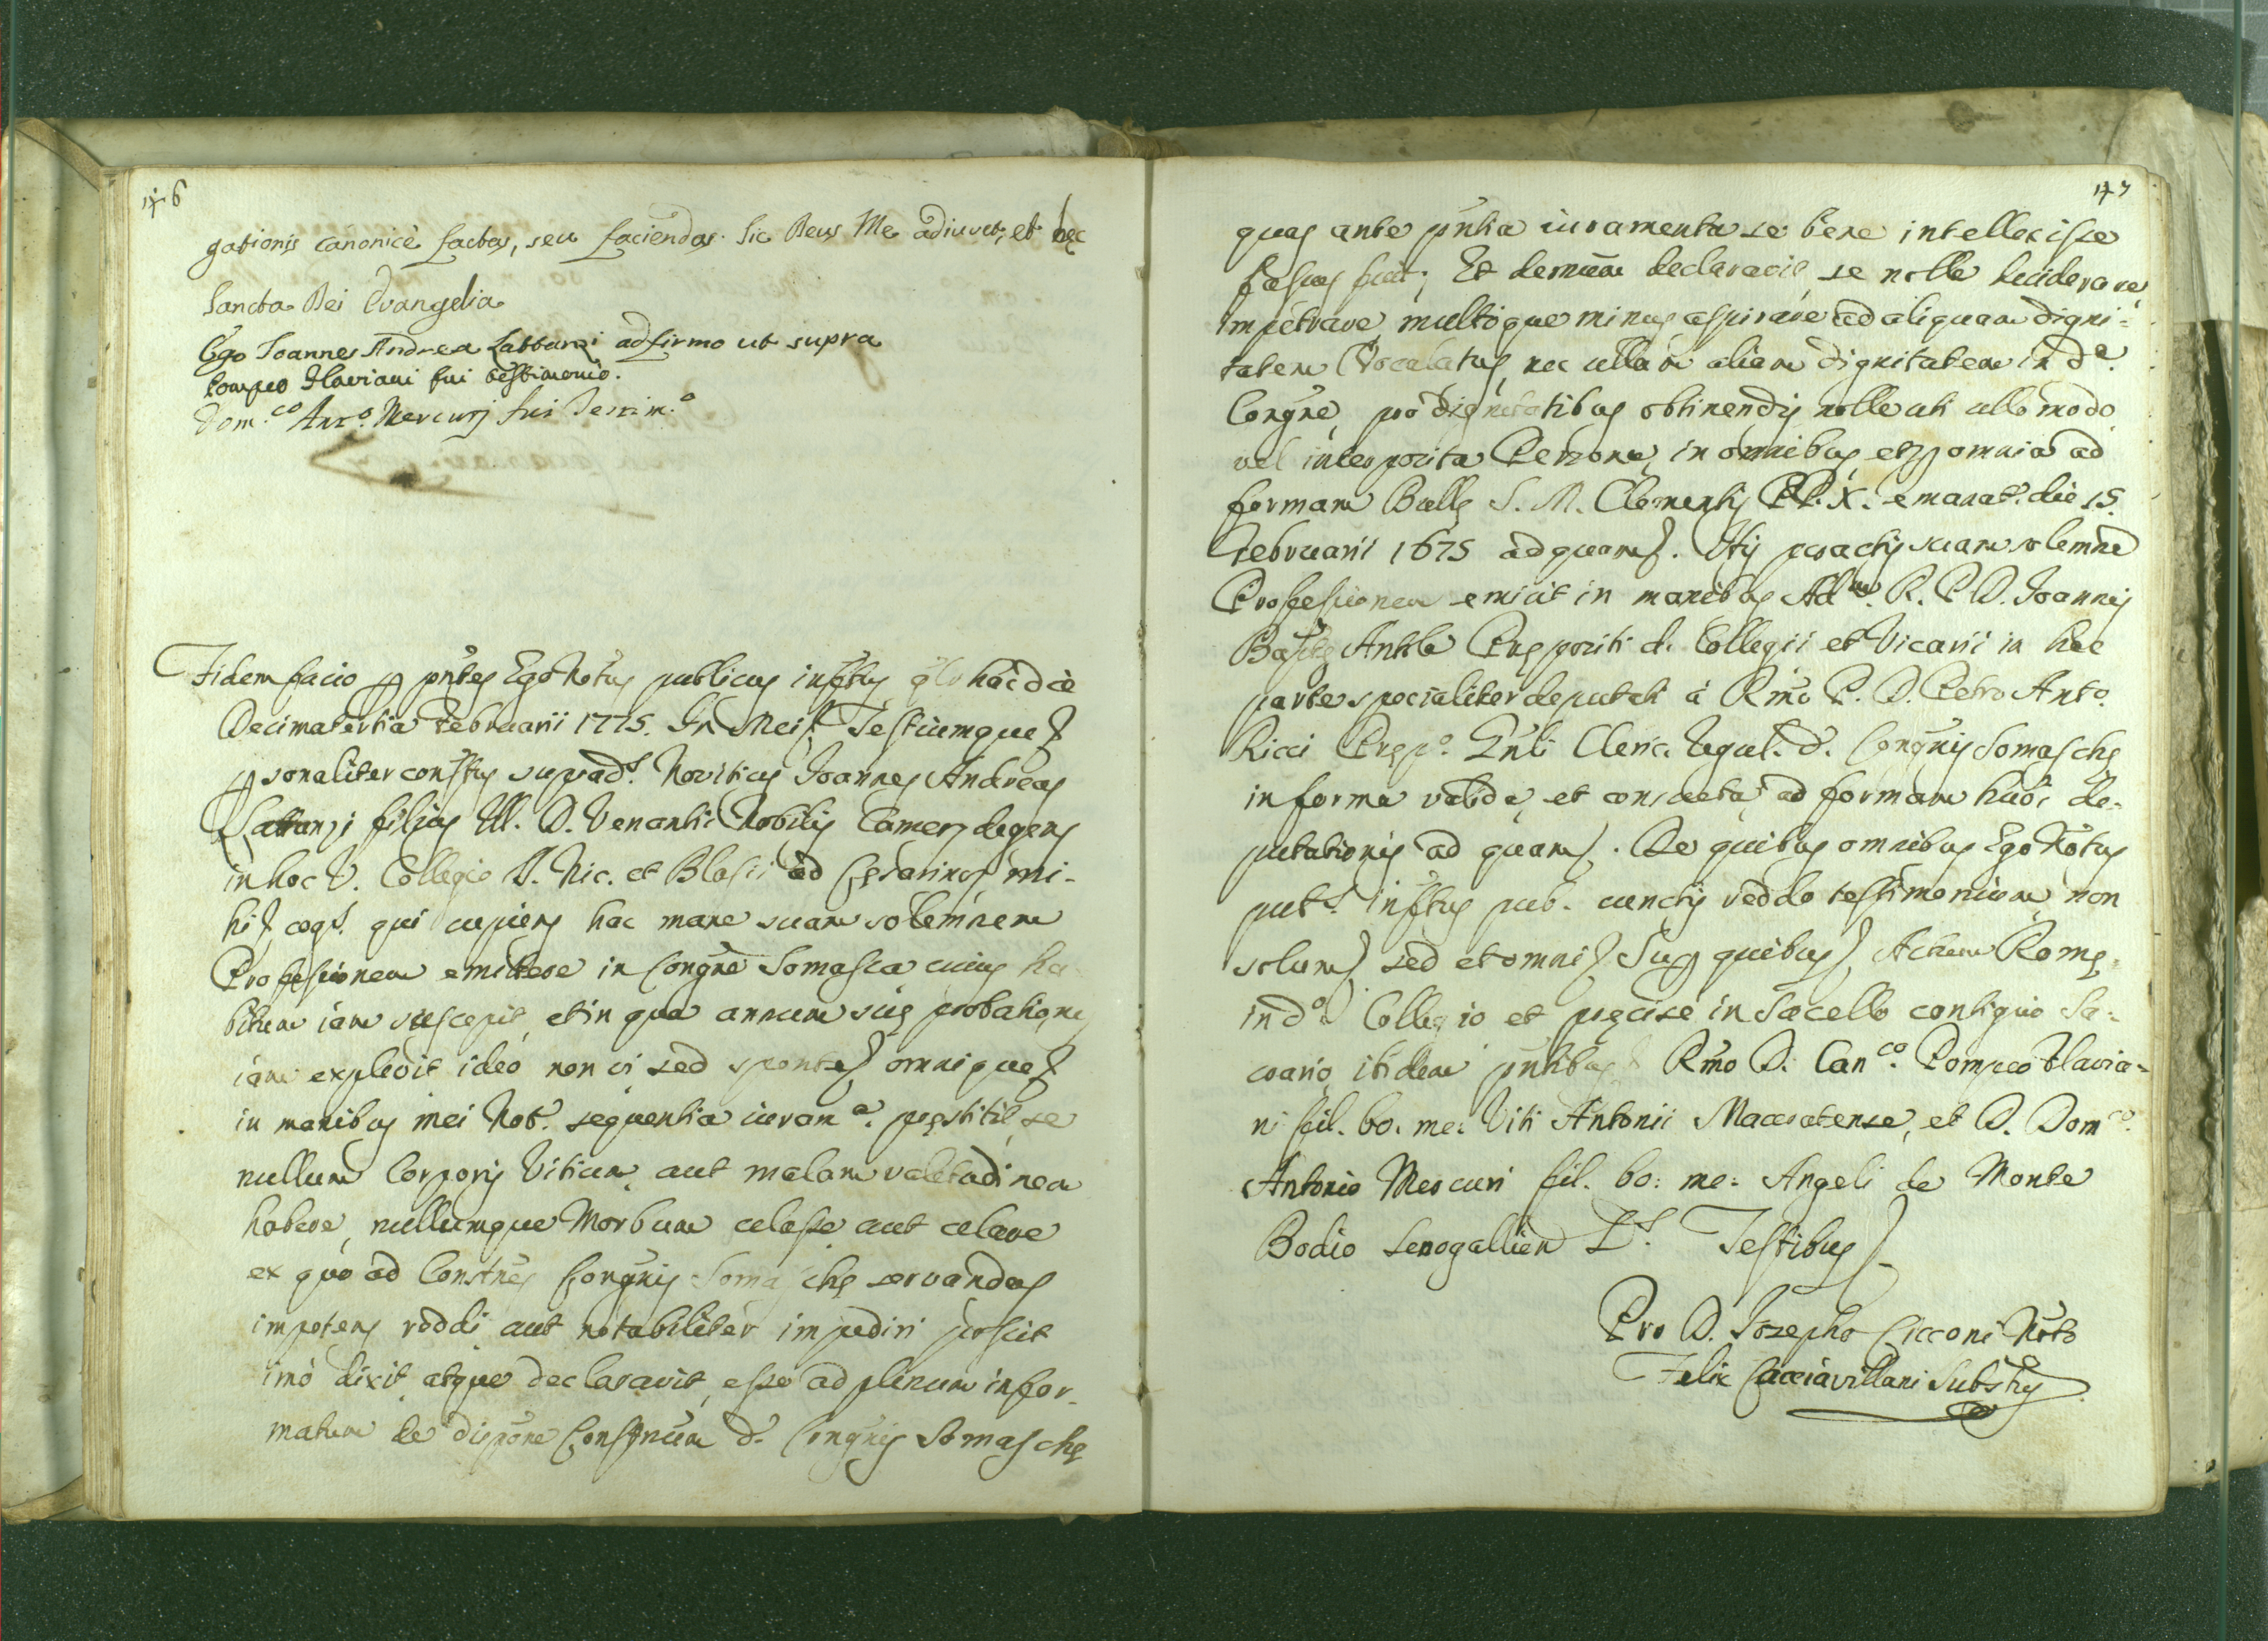 146
gationis canonicè factas, seu faciendas. Sic Deus Me adiuvet, et hęc
Sancta Dei Evangelia
Ego Joannes Andrea Lattanzi adfirmo ut supra
Pompeo Flaviani fui testimonio.
Dom.co Ant.o Mercurj fui Testim.o
Fidem facio p pntes Ego Notus publicus infttus qlr hac die
Decimatertia Februarii 1775. In Mei Testiumque
psonaliter consttus suprad.s Novitius Joannes Andreas
Lattanzi filius Ill. D. Venantii Nobilis Camers degens
in hoc V. Collegio S. Nic. et Blasii ad Cęsarinos mi-
hi cog.s qui cupiens hac mane suam solemnem
Professionem emittere in Congne Somasca cuius ha-
bitum iam suscepit, et in qua annum suę probationis
iam explevit ideo non vi sed sponte omnique
in manibus mei Not. sequentia iuram.a pręstitit, se
nullum Corporis Vitium, aut malam valetudinem
habere, nullumque Morbum celasse aut celare
ex quo ad Constnes Congnis Somaschę servandas
impotens reddi aut notabiliter impediri possit
imò dixit, atque declaravit, esse ad plenum infor-
matum de dispone Constnum d. Congnis Somaschę
147
quas ante pntia iuramenta se bene intellexisse
fassus fuit; Et demum declaravit se nolle
impetrare multoque minus aspirare ad aliquam digni-
tatem Vocalatus, nec ullam aliam dignitatem in d.a
Congne, pro dignitatibus obtinendis nolle uti ullo modo
vel interposita Persona, in omnibus et p omnia ad
formam Bullę S. M. Clementis PP. X. emanat. die 15
Februarii 1675 ad quam. His peractis suam solemne
Professionem emisit in manibus Adm. R. P. D. Joannis
Baptę Prępositi d. Collegii et Vicarii in hac
parte specialiter deputati à Rmo P. D. Petro Anto.
Ricci Pręp.o Gnli Cleric. Regul. d. Congnis Somaschę
in forma valida, et consueta, ad formam huoi de-
putationis ad quam. De quibus omnibus Ego Notus
infttus pub. cunctis reddo testimonium non
solum sed et omni Sup quibus Actum Romę
in d.o Collegio et pręcise in Sacello contiguo Sa-
crario, ibidem pntibus Rmo D. Can.co Pompeo Flavia-
ni fil. bo. me: Viti Antonii Maceratense, et D. Dom.co
Antonio Mercuri fil. bo: me: Angeli de Monte
Bodio Senogallien Testibus
Pro D. Josepho Cicconi Noto
Felix Cacciavillani Substus